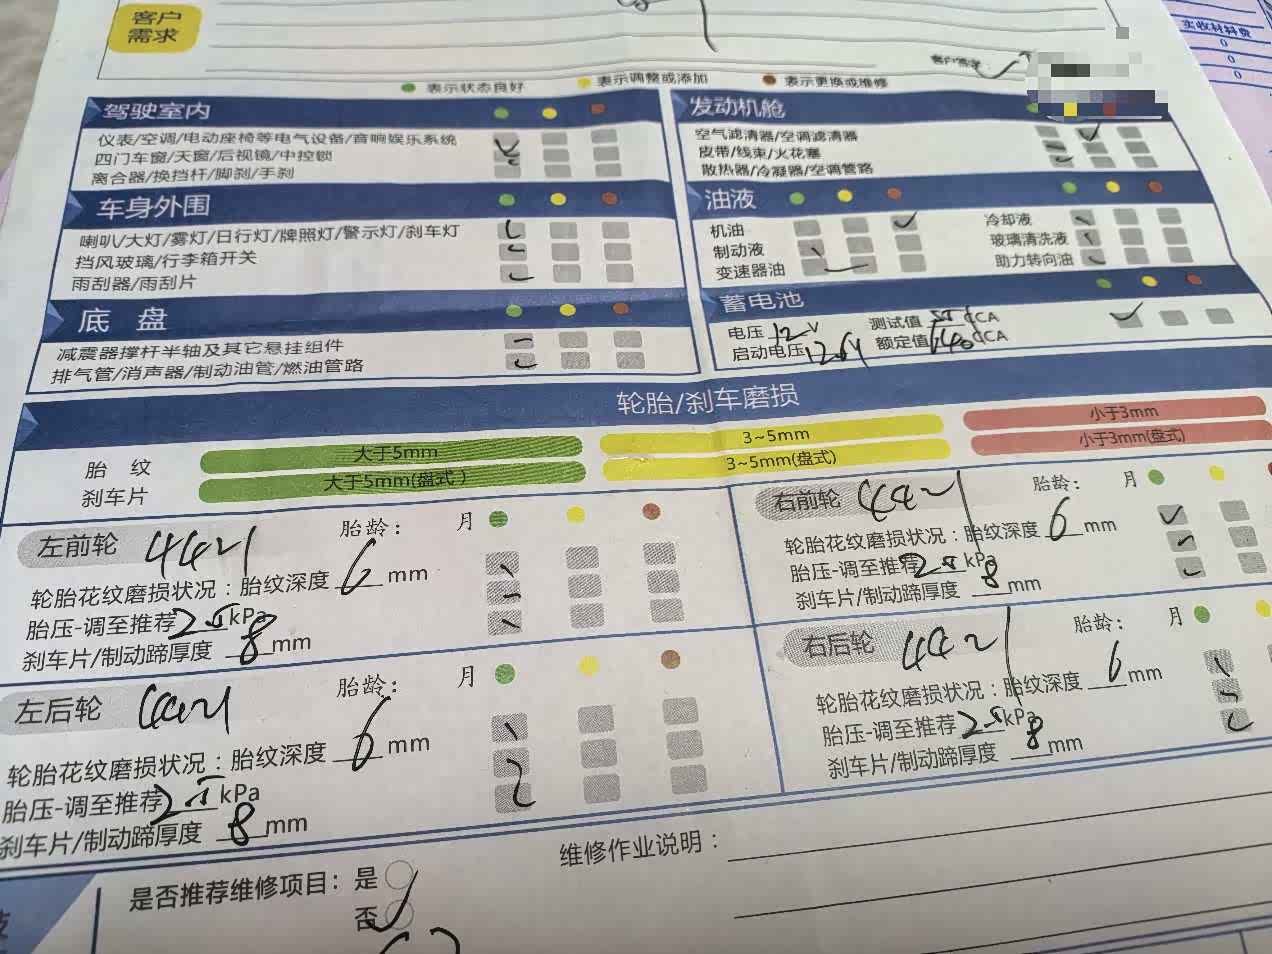 客户
需求
实收材料费
0
0
0
客户签字
表示状态良好 表示调整或添加 表示更换或维修
驾驶室内
仪表/空调/电动座椅等电气设备/音响娱乐系统
四门车窗/天窗/后视镜/中控锁
离合器/换挡杆/脚刹/手刹
发动机舱
空气滤清器/空调滤清器
皮带/线束/火花塞
散热器/冷凝器/空调管路
车身外围
喇叭/大灯/雾灯/日行灯/牌照灯/警示灯/刹车灯
挡风玻璃/行李箱开关
雨刮器/雨刮片
油液
机油 冷却液
制动液 玻璃清洗液
变速器油 助力转向油
底 盘
减震器撑杆半轴及其它悬挂组件
排气管/消声器/制动油管/燃油管路
蓄电池
电压 12V 测试值 CA
启动电压 额定值 640 CA
轮胎/刹车磨损
胎 纹 大于5mm 3~5mm 小于3mm
刹车片 大于5mm(盘式) 3~5mm(盘式) 小于3mm(盘式)
左前轮 胎龄: 月
轮胎花纹磨损状况:胎纹深度 6 mm
胎压-调至推荐 2.5 kPa
刹车片/制动蹄厚度 8 mm
右前轮 胎龄: 月
轮胎花纹磨损状况:胎纹深度 6 mm
胎压-调至推荐 2.5 kPa
刹车片/制动蹄厚度 8 mm
左后轮 胎龄: 月
轮胎花纹磨损状况:胎纹深度 6 mm
胎压-调至推荐 2.5 kPa
刹车片/制动蹄厚度 8 mm
右后轮 胎龄: 月
轮胎花纹磨损状况:胎纹深度 6 mm
胎压-调至推荐 2.5 kPa
刹车片/制动蹄厚度 8 mm
是否推荐维修项目: 是
否
维修作业说明: